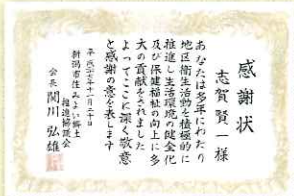 感謝状
志賀賢一様
あなたは多年にわたり
地区衛生活動を積極的に
推進し生活環境の健全化
及び保健福祉の向上に多
大の貢献をされました
よってここに深く敬意
と感謝の意を表します
平成二十七年十一月二十日
新潟市住みよい郷土
推進協議会
会長 関川弘雄